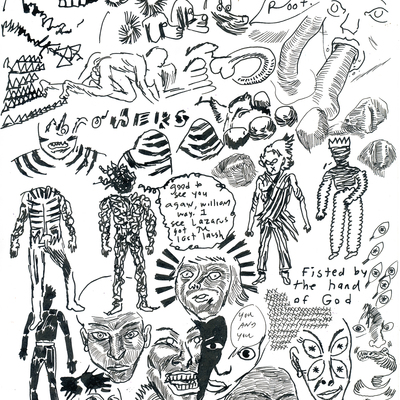 Root.
good to
see you
again, william
way. I
see Lazarus
got the
last laugh
Fisted by
the hand
of God
You
AND
You